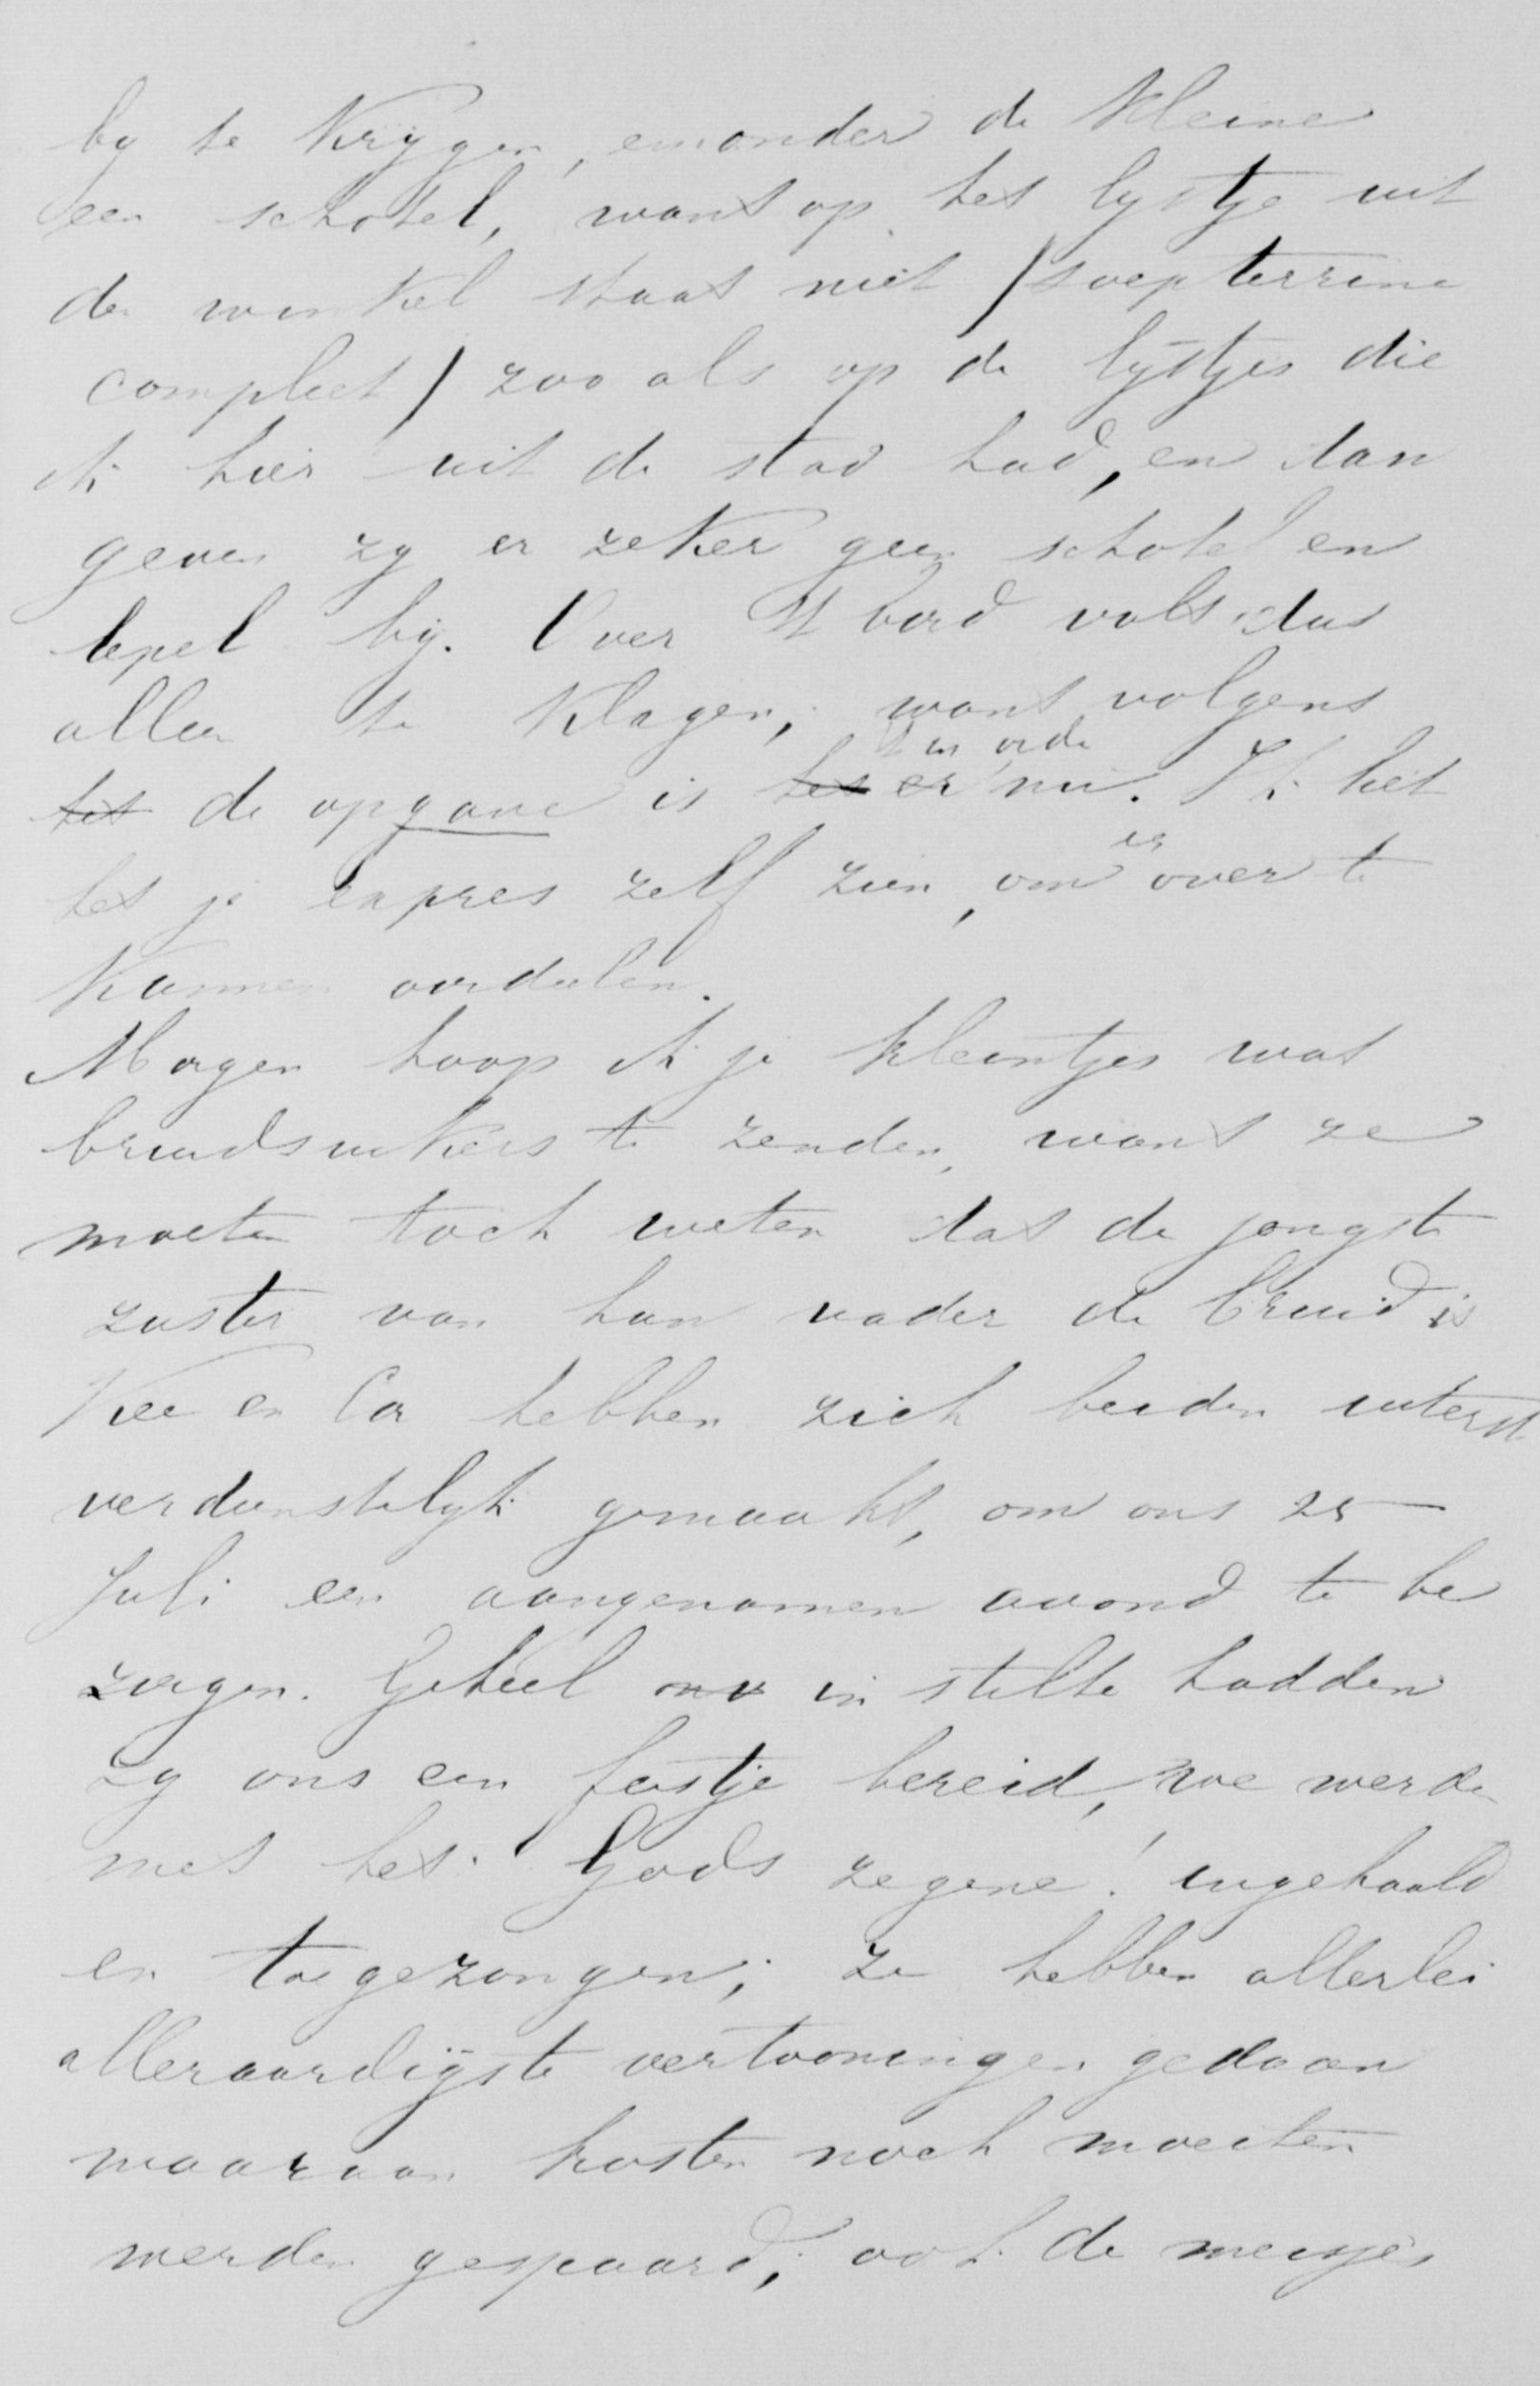 by te krygen, en onder de kleine
een schotel, want op het lystje uit
de winkel staat niet (soepterrine
compleet) zoo als op de lystjes die
ik hier uit de stad had, en dan
geven zy er zeker geen schotel en
lepel bij. Over 't bord valt dus
alleen te klagen; want volgens
't in orde
het de opgave is het er nu. Ik liet
er
het je expres zelf zien, om over te
kunnen oordeelen.
Morgen hoop ik je kleintjes wat
bruidsuikers te zenden, want ze
moeten toch weten dat de jongste
zuster van hun vader de bruid is
Kee en Co hebben zich beiden uiterst
verdienstelyk gemaakt, om ons 25
Juli een aangenamen avond te be
zorgen. Geheel in stilte hadden
zy ons een feestje bereid, we werden
met het: Gods zegene! ingehaald
en toegezongen; ze hebben allerlei
alleraardigste vertooningen gedaan
waaraan kosten noch moeiten
werden gespaard; ook de meisjes